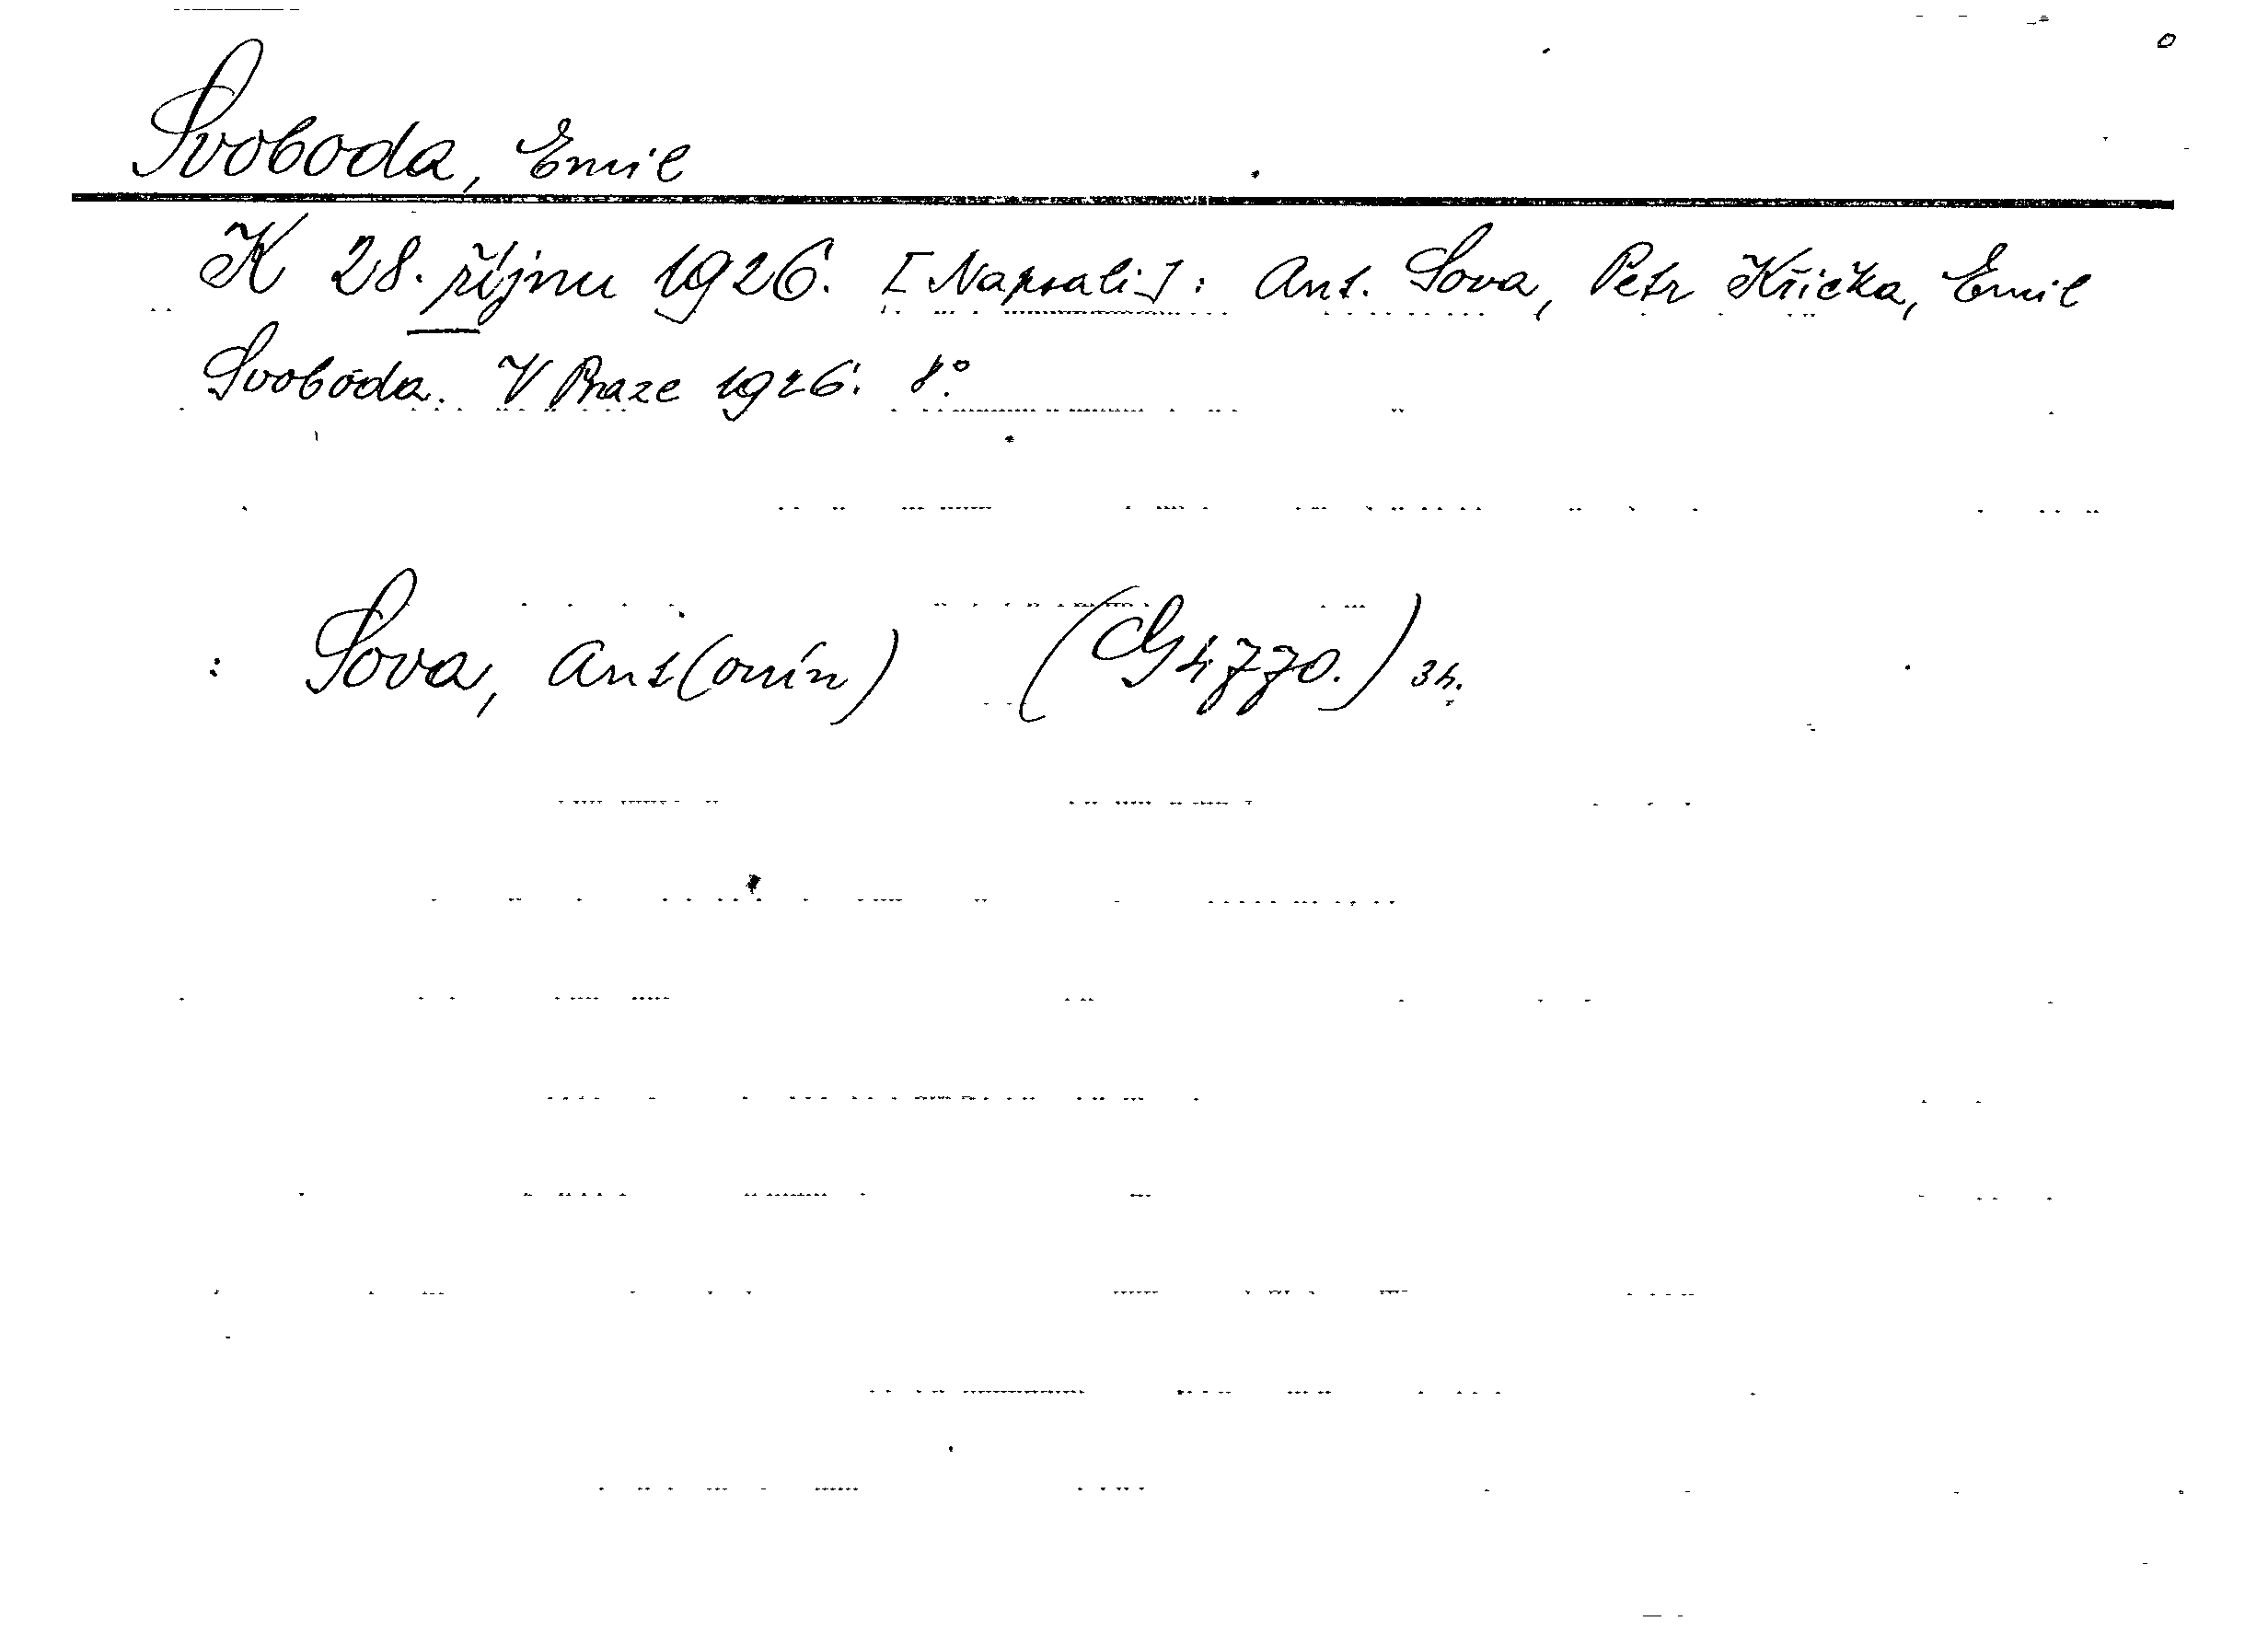 Svoboda, Emil
K 28. říjnu 1926. [Napsali]: Ant. Sova, Petr Křička, Emil
Svoboda. V Praze 1926. 8°.
: Sova, Ant(onín) (G 4770.) 3h.